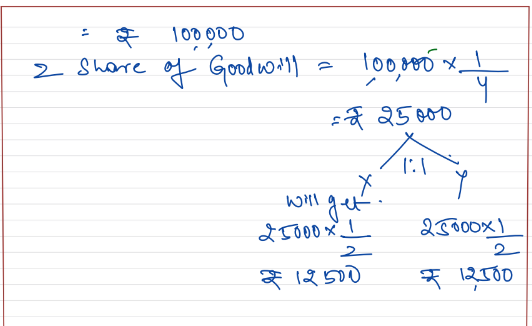 = ₹ 100,000
Z Share of Goodwill = 100,000 × 1/4
= ₹ 25000
1:1
X Y
will get.
25000 × 1/2 25000 × 1/2
₹ 12500 ₹ 12,500